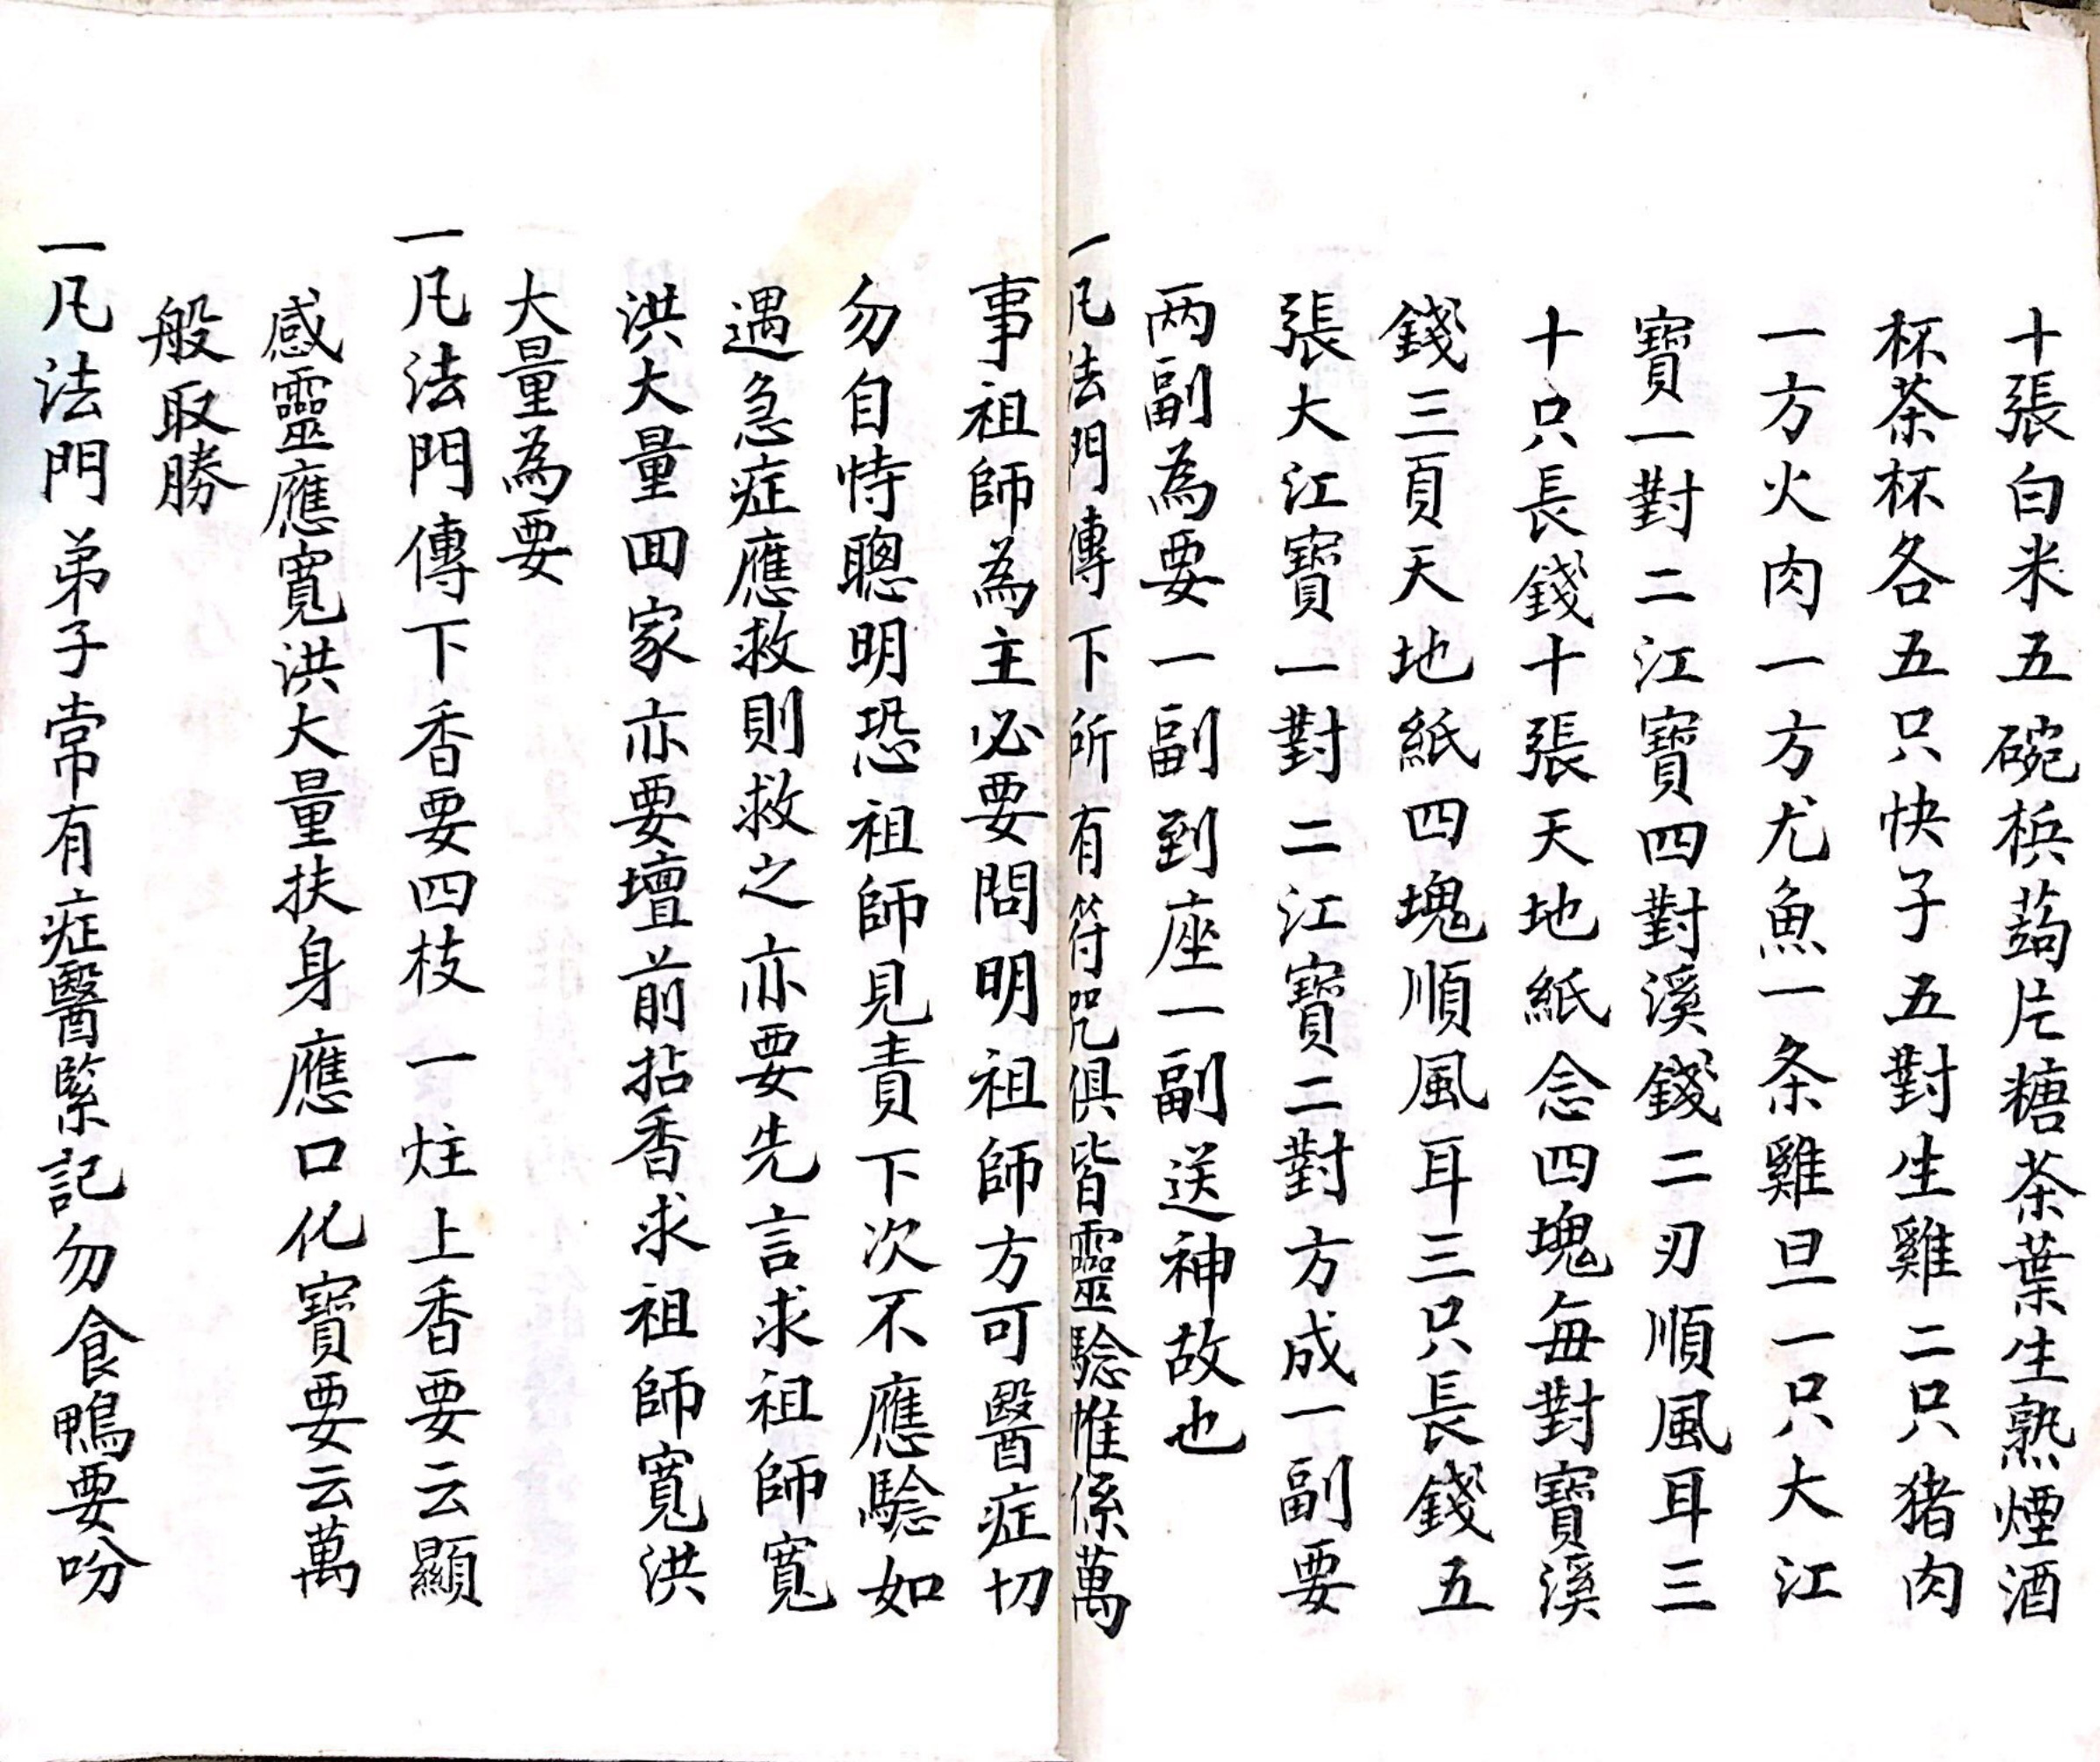 十張白米五碗梹蒟片糖茶葉生熟煙酒
杯茶杯各五只快子五對生雞二只猪肉
一方火肉一方尤魚一条雞旦一只大江
寶一對二江寶四對溪錢二刃順風耳三
十只長錢十張天地紙念四塊每對寶溪
錢三頁天地紙四塊順風耳三只長錢五
張大江寶一對二江寶二對方成一副要
两副為要一副到座一副送神故也
一凡法門傳下所有符咒俱皆靈驗惟係萬
事祖師為主必要問明祖師方可醫症切
勿自恃聰明恐祖師見責下次不應驗如
遇急症應救則救之亦要先言求祖師寬
洪大量回家亦要壇前拈香求祖師寬洪
大量為要
一凡法門傳下香要四枝一炷上香要云顯
感靈應寬洪大量扶身應口化寶要云萬
般取勝
一凡法門弟子常有症醫緊記勿食鴨要吩